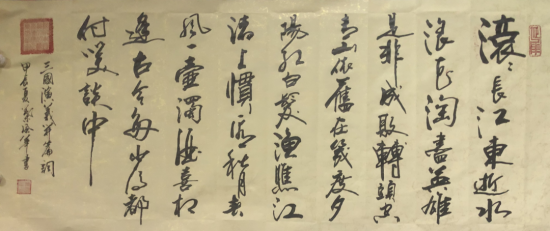 滚〻長江東逝水
浪花淘盡英雄
是非成敗轉頭空
青山依舊在幾度夕
陽紅白髮漁樵江
渚上慣看秋月春
風一壺濁酒喜相
逢古今多少事都
付笑談中
三國演義開篇詞
甲辰夏書